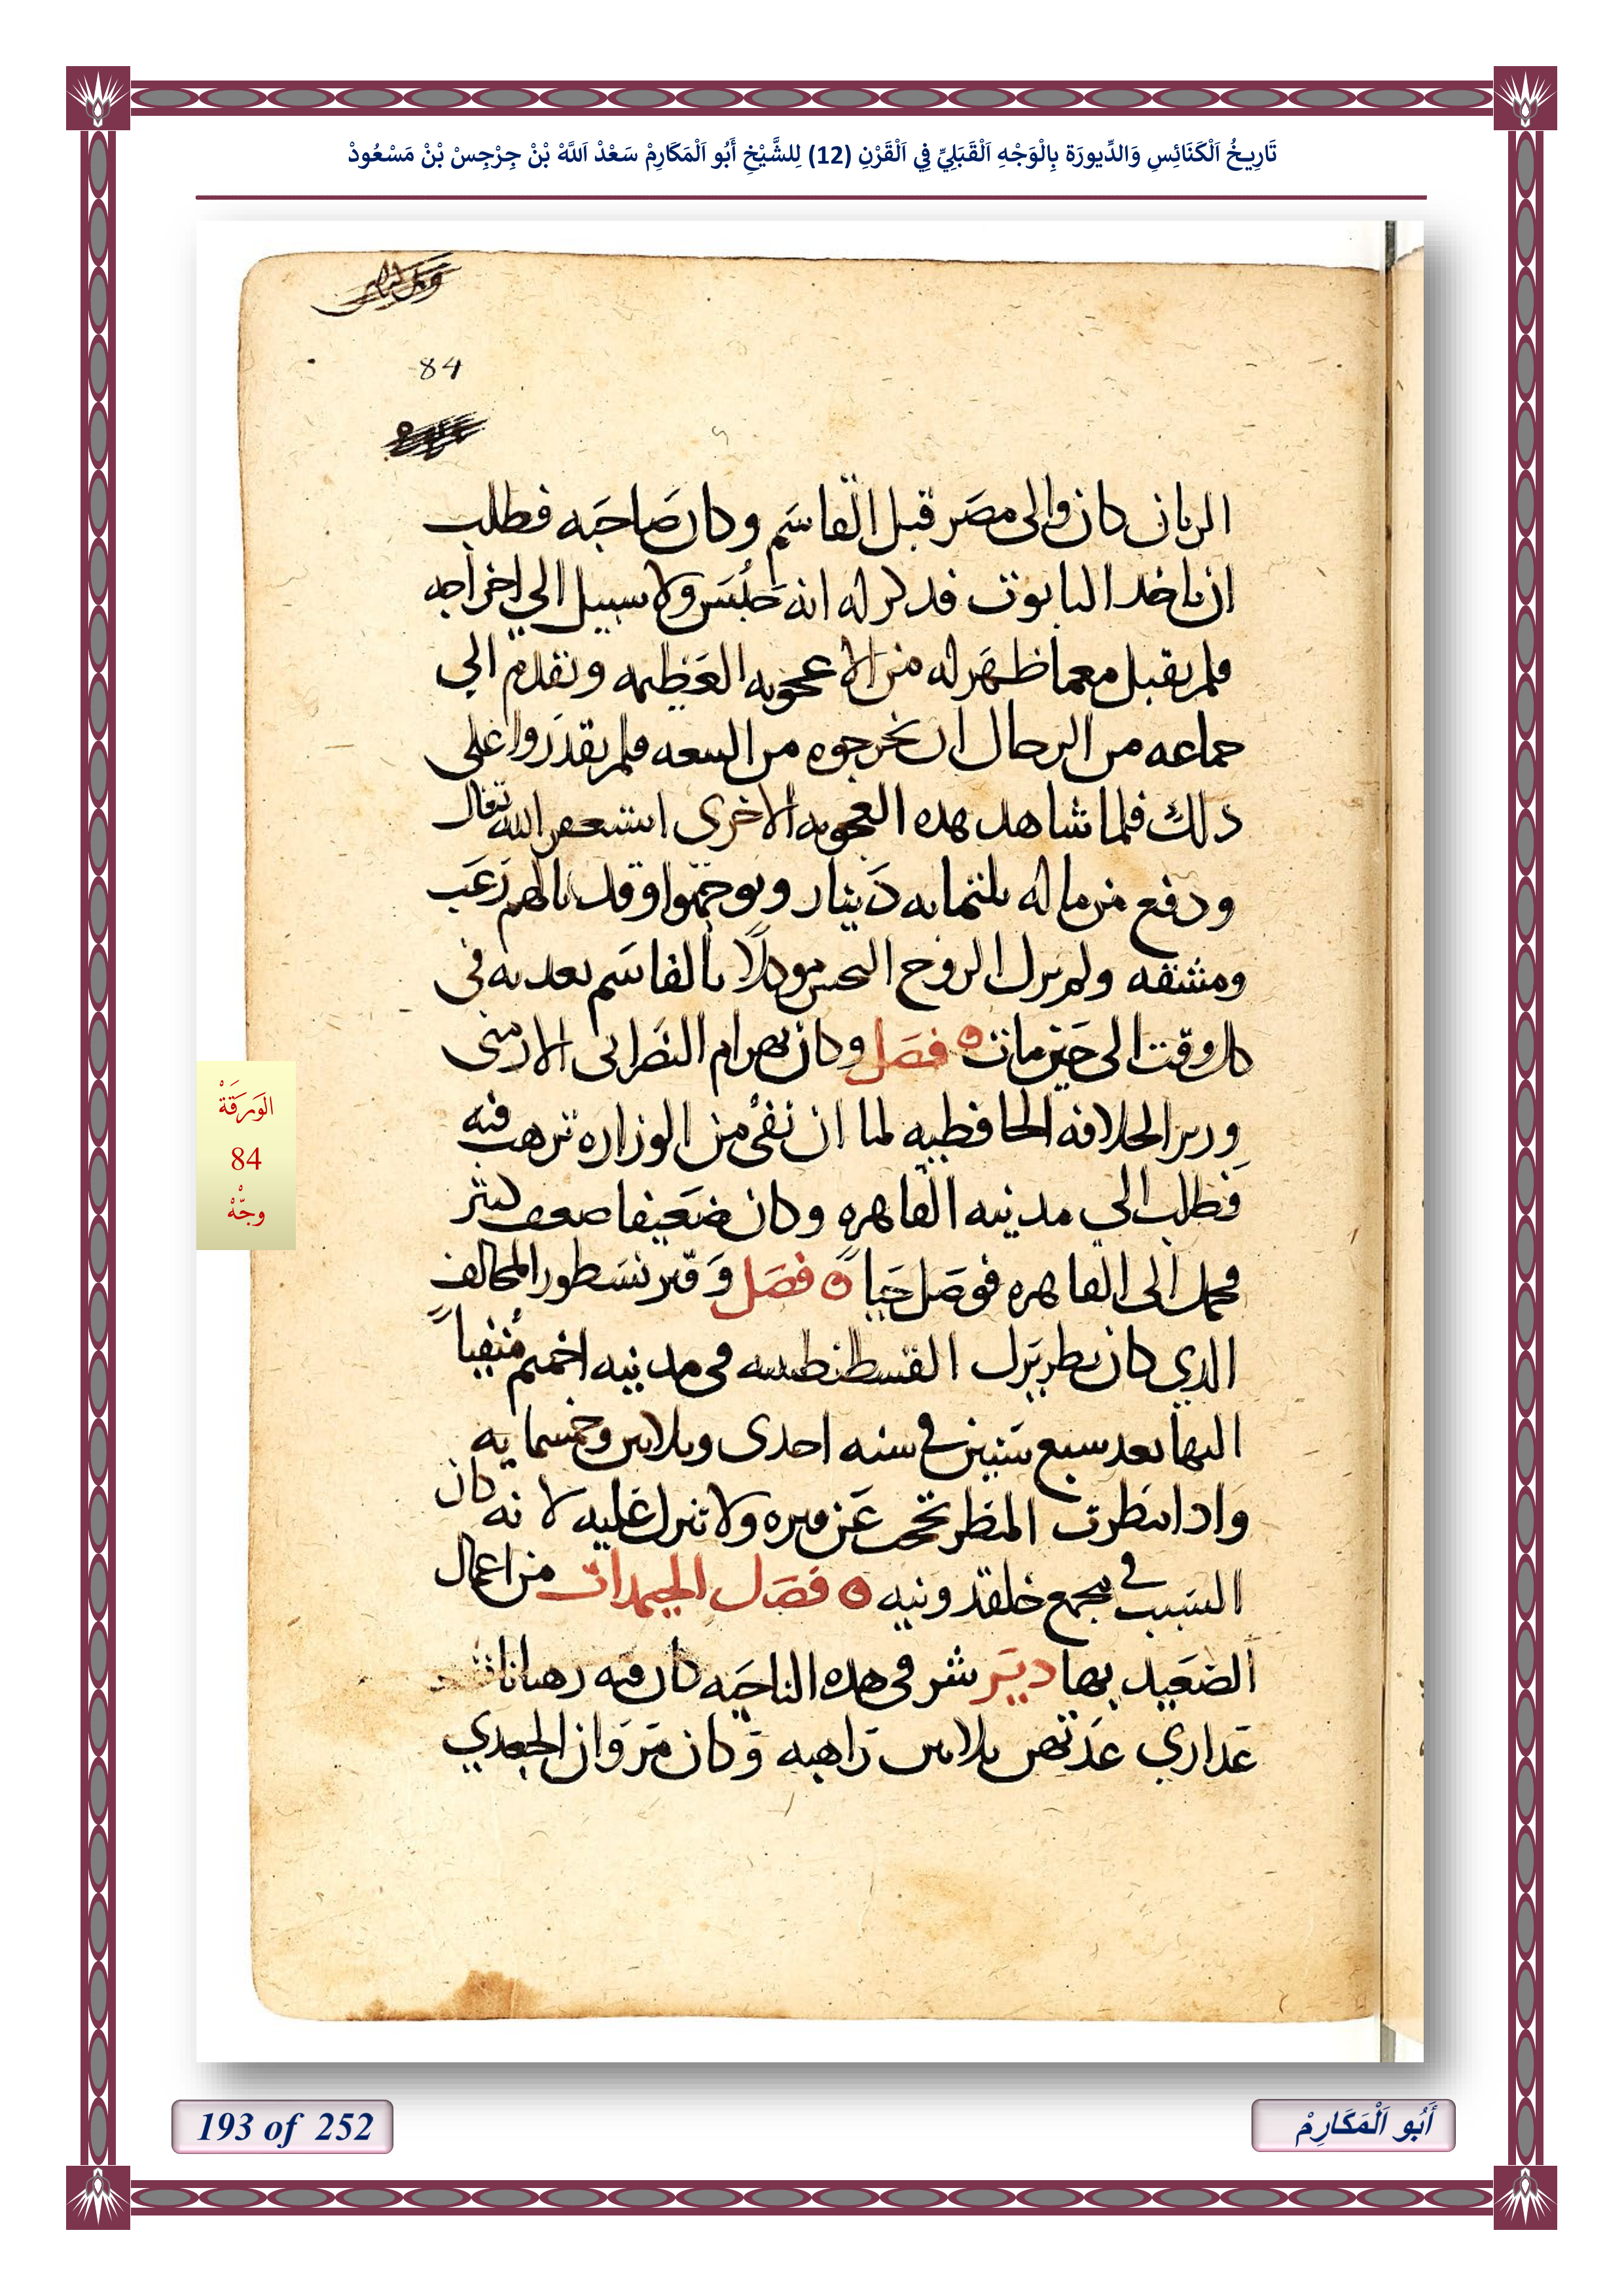 تَارِيخُ اَلْكَنَائِسِ وَالدِّيورَة بِالْوَجْهِ اَلْقَبَلِيِّ فِي اَلْقَرْنِ (12) لِلشَّيْخِ أَبُو اَلْمَكَارِمْ سَعْدْ اَللَّهْ بْنْ جِرْجِسْ بْنْ مَسْعُودْ
84
الريان كان والى مصر قبل القاسم وكان صاحبه فطلب
ان ياخد التابوت فدكر له انه حبس ولا سبيل الي اخراجه
فلم يقبل معما ظهر له من الاعجوبه العظيمه وتقدم الي
جماعه من الرجال ان يخرجوه من البيعه فلم يقدروا على
دلك فلما شاهد هده العجوبه الاخرى استغفر الله تعالى
ودفع من ماله تلتمايه دينار وتوجهوا وقد نالهم رعب
ومشقه ولم يزل الروح النجس موكلاً بالقاسم يعدبه في
كل وقت الى حين مات ه فصل وكان بهرام النصرانى الارمنى
وزير الخلافه الحافظيه لما ان نفي من الوزاره ترهب فيه
فطلب الي مدينه القاهره وكان ضعيفا ضعف كثير
فحمل الى القاهره فوصل حياً ه فصل وقبر نسطور المخالف
الدي كان بطريرك القسطنطينيه في مدينه اخميم منفياً
اليها بعد سبع سنين في سنه احدى وتلاتين وخمسمايه
وادا نظرت المطر تحت عن قبره ولا تنزل عليه لانه كان
السبب في مجمع خلقدونيه ه فصل الجيمدات من اعمال
الصعيد بها دير شر في هده الناحيه كان فيه رهبانات
عداري عدتهن تلاتين راهبه وكان مروان الجعدي
الوَرَقَةْ
84
وجْهْ
193 of 252
أَبُو اَلْمَكَارِمْ